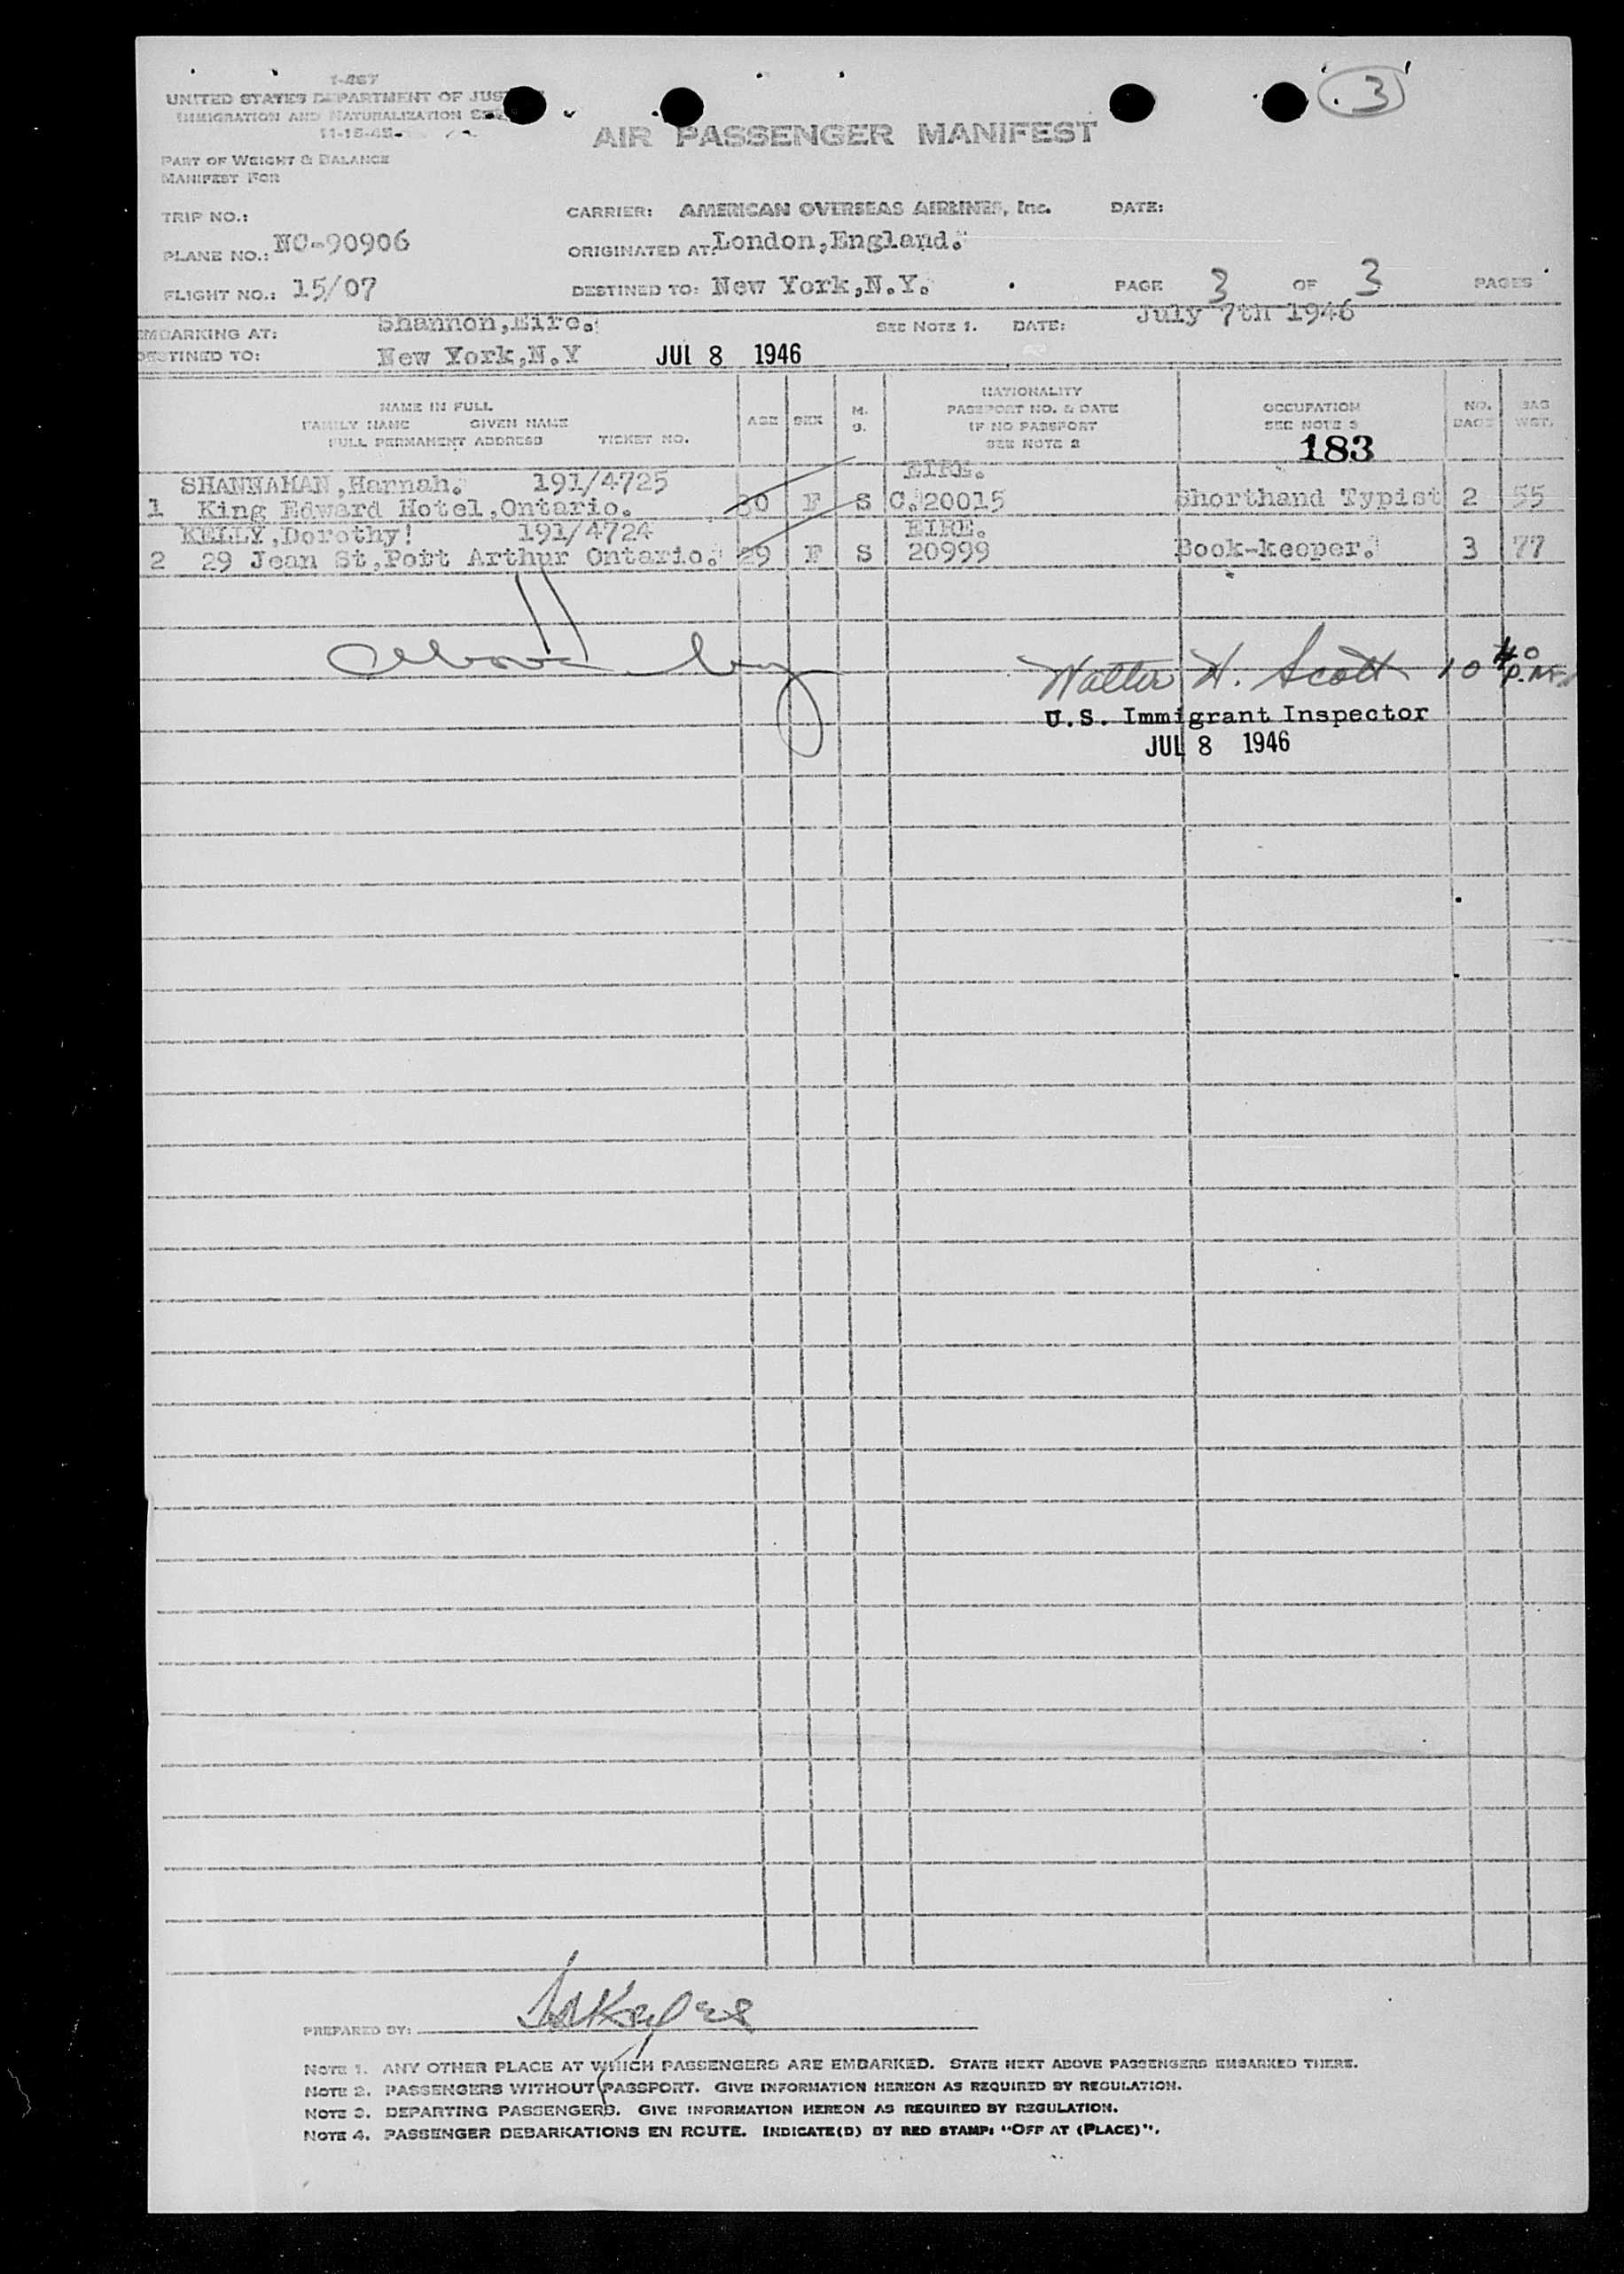 3
I-467
UNITED STATES DEPARTMENT OF JUS
IMMIGRATION AND NATURALIZATION SER
11-15-45
AIR PASSENGER MANIFEST
PART OF WEIGHT & BALANCE
MANIFEST FOR
TRIP NO.: CARRIER: AMERICAN OVERSEAS AIRLINES, Inc. DATE:
PLANE NO.: NC-90906 ORIGINATED AT: London,England.
FLIGHT NO.: 15/07 DESTINED TO: New York,N.Y. PAGE 3 OF 3 PAGES
EMBARKING AT: Shannon,Eire. SEE NOTE 1. DATE: July 7th 1946
DESTINED TO: New York,N.Y JUL 8 1946
NAME IN FULL
FAMILY NAME GIVEN NAME
FULL PERMANENT ADDRESS TICKET NO.
AGE SEX M. S.
NATIONALITY
PASSPORT NO. & DATE
IF NO PASSPORT
SEE NOTE 2
OCCUPATION
SEE NOTE 3
183
NO. BAGS
BAG WGT.
SHANNAHAN,Hannah. 191/4725 EIRE.
1 King Edward Hotel,Ontario. 30 F S C.20015 Shorthand Typist 2 55
KELLY,Dorothy! 191/4724 EIRE.
2 29 Jean St,Port Arthur Ontario. 29 F S 20999 Book-keeper. 3 77
Walter H. Scott 10 40 P.M.
U.S. Immigrant Inspector
JUL 8 1946
PREPARED BY:
NOTE 1. ANY OTHER PLACE AT WHICH PASSENGERS ARE EMBARKED. STATE NEXT ABOVE PASSENGERS EMBARKED THERE.
NOTE 2. PASSENGERS WITHOUT PASSPORT. GIVE INFORMATION HEREON AS REQUIRED BY REGULATION.
NOTE 3. DEPARTING PASSENGERS. GIVE INFORMATION HEREON AS REQUIRED BY REGULATION.
NOTE 4. PASSENGER DEBARKATIONS EN ROUTE. INDICATE(D) BY RED STAMP: "OFF AT (PLACE)".